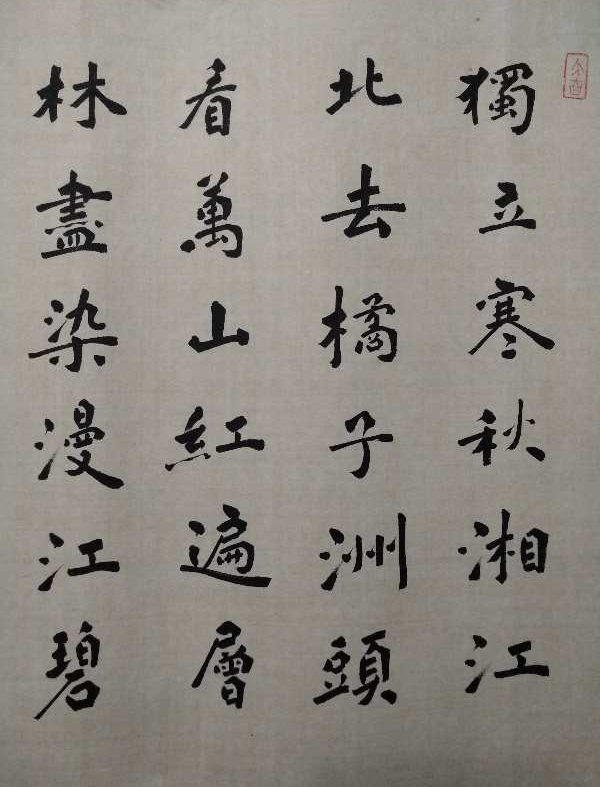 獨立寒秋湘江
北去橘子洲頭
看萬山紅遍層
林盡染漫江碧